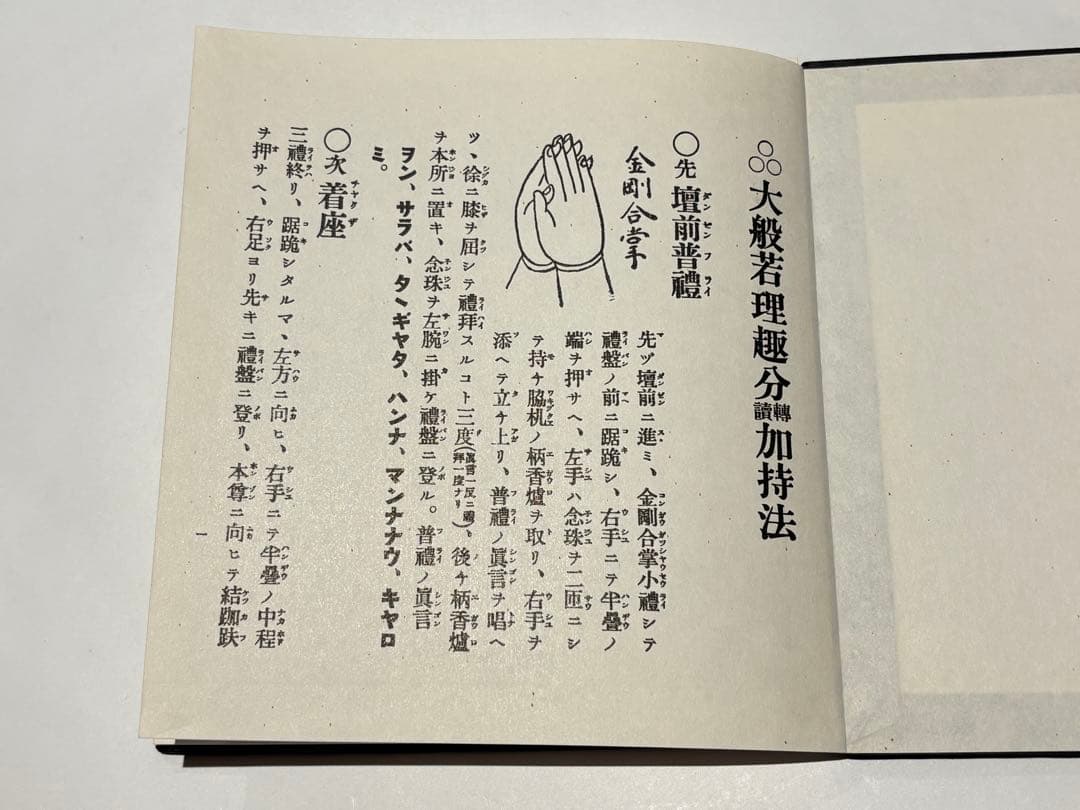 大般若理趣分轉讀加持法
○先壇前普禮
金剛合掌
先ヅ壇前ニ進ミ、金剛合掌小禮シテ
禮盤ノ前ニ踞跪シ、右手ニテ半疊ノ
端ヲ押サヘ、左手ハ念珠ヲ二匝ニシ
テ持チ脇机ノ柄香爐ヲ取リ、右手ヲ
添ヘテ立チ上リ、普禮ノ眞言ヲ唱ヘ
ツヽ徐ニ膝ヲ屈シテ禮拜スルコト三度(眞言一反ニ禮拜一度ナリ)、後チ柄香爐
ヲ本所ニ置キ、念珠ヲ左腕ニ掛ケ禮盤ニ登ル。普禮ノ眞言
ヲン、サラバ、タヽギヤタ、ハンナ、マンナナウ、キヤロ
ミ。
○次着座
三禮終リ、踞跪シタルマヽ左方ニ向ヒ、右手ニテ半疊ノ中程
ヲ押サヘ、右足ヨリ先キニ禮盤ニ登リ、本尊ニ向ヒテ結跏趺
一